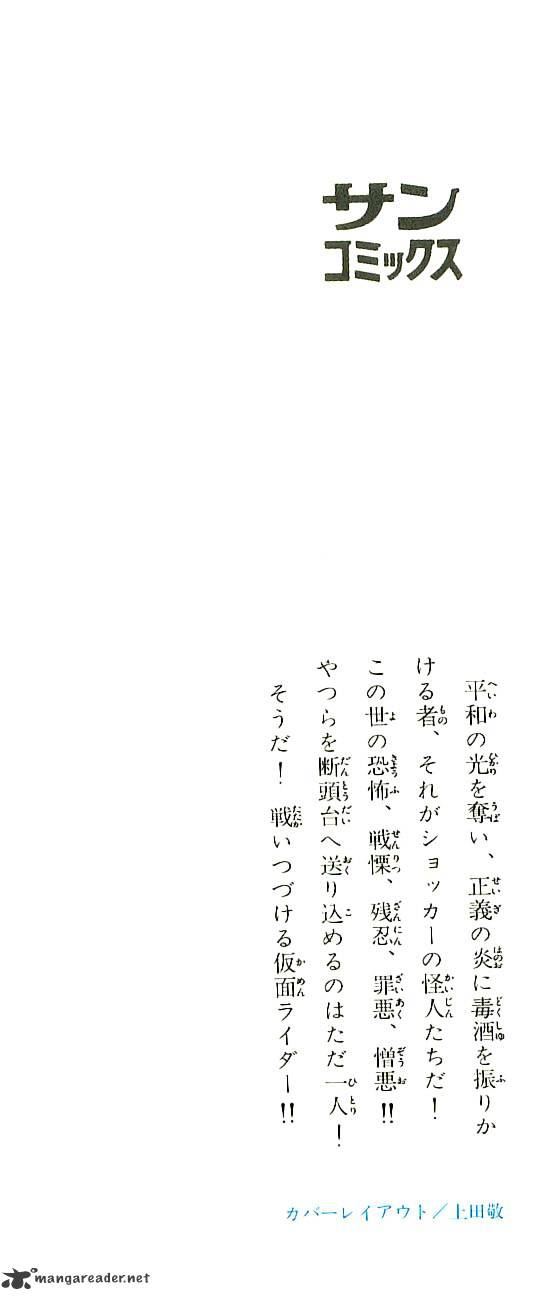 サン
コミックス
平和の光を奪い、正義の炎に毒酒を振りか
ける者、それがショッカーの怪人たちだ！
この世の恐怖、戦慄、残忍、罪悪、憎悪!!
やつらを断頭台へ送り込めるのはただ一人！
そうだ！ 戦いつづける仮面ライダー!!
カバーレイアウト／上田敬
mangareader.net